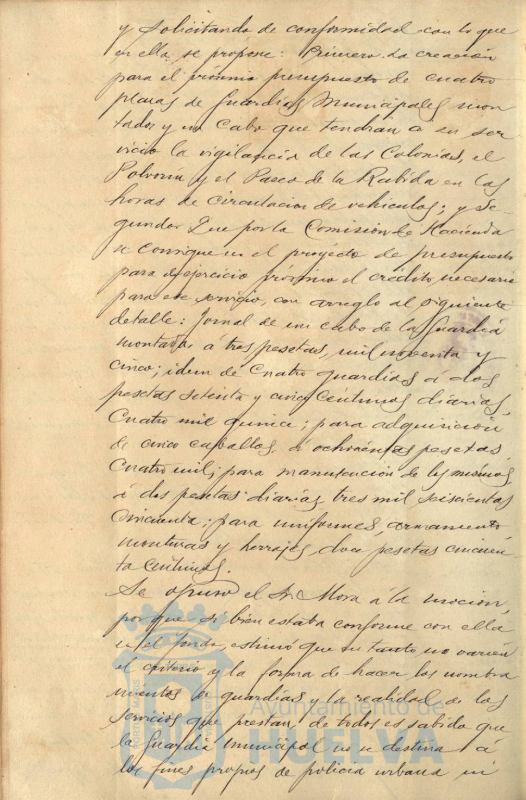 y solicitando de conformidad con lo que
en ella se propone: Primero La creación
para el próximo presupuesto de cuatro
plazas de Guardias Municipales mon
tados y un Cabo que tendrán a su ser
vicio la vigilancia de las Colonias, el
Polvorín y el Paseo de la Rabida en las
horas de circulación de vehiculos; y Se-
gundo: Que por la Comisión de Hacienda
se consigne en el proyecto de presupuesto
para el ejercicio próximo el crédito necesario
para ese servicio, con arreglo al siguiente
detalle: Jornal de un cabo de la Guardia
montada, á tres pesetas, mil noventa y
cinco; idem de Cuatro guardias á dos
pesetas setenta y cinco céntimos diarias,
Cuatro mil quince; para adquisición
de cinco caballos, á ochocientas pesetas,
Cuatro mil; para manutención de los mismos,
á dos pesetas diarias, tres mil seiscientas
cincuenta; para uniformes, armamento,
monturas y herrajes, doce pesetas cincuen
ta céntimos.
Se opuso el Sr. Mora á la moción,
porque si bien estaba conforme con ella
en el fondo, estimó que en tanto no varíen
el criterio y la forma de hacer los nombra
mientos de guardias y la realidad de los
servicios que prestan, de todos es sabido que
la Guardia Municipal no se destina á
los fines propios de policía urbana ni
Ayuntamiento de
HUELVA